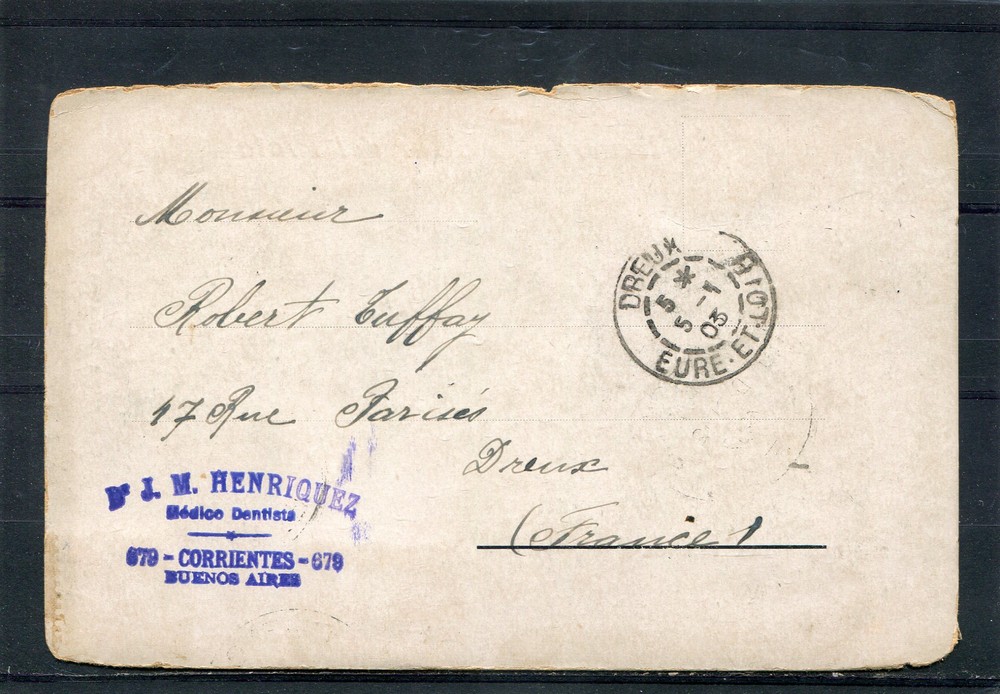 Monsieur
Robert Tuffay
17 Rue Parisis
Dreux
(France)
DREUX
5
5 -1
03
EURE-ET-LOIR
Dr J. M. HENRIQUEZ
Médico Dentista
679 - CORRIENTES - 679
BUENOS AIRES